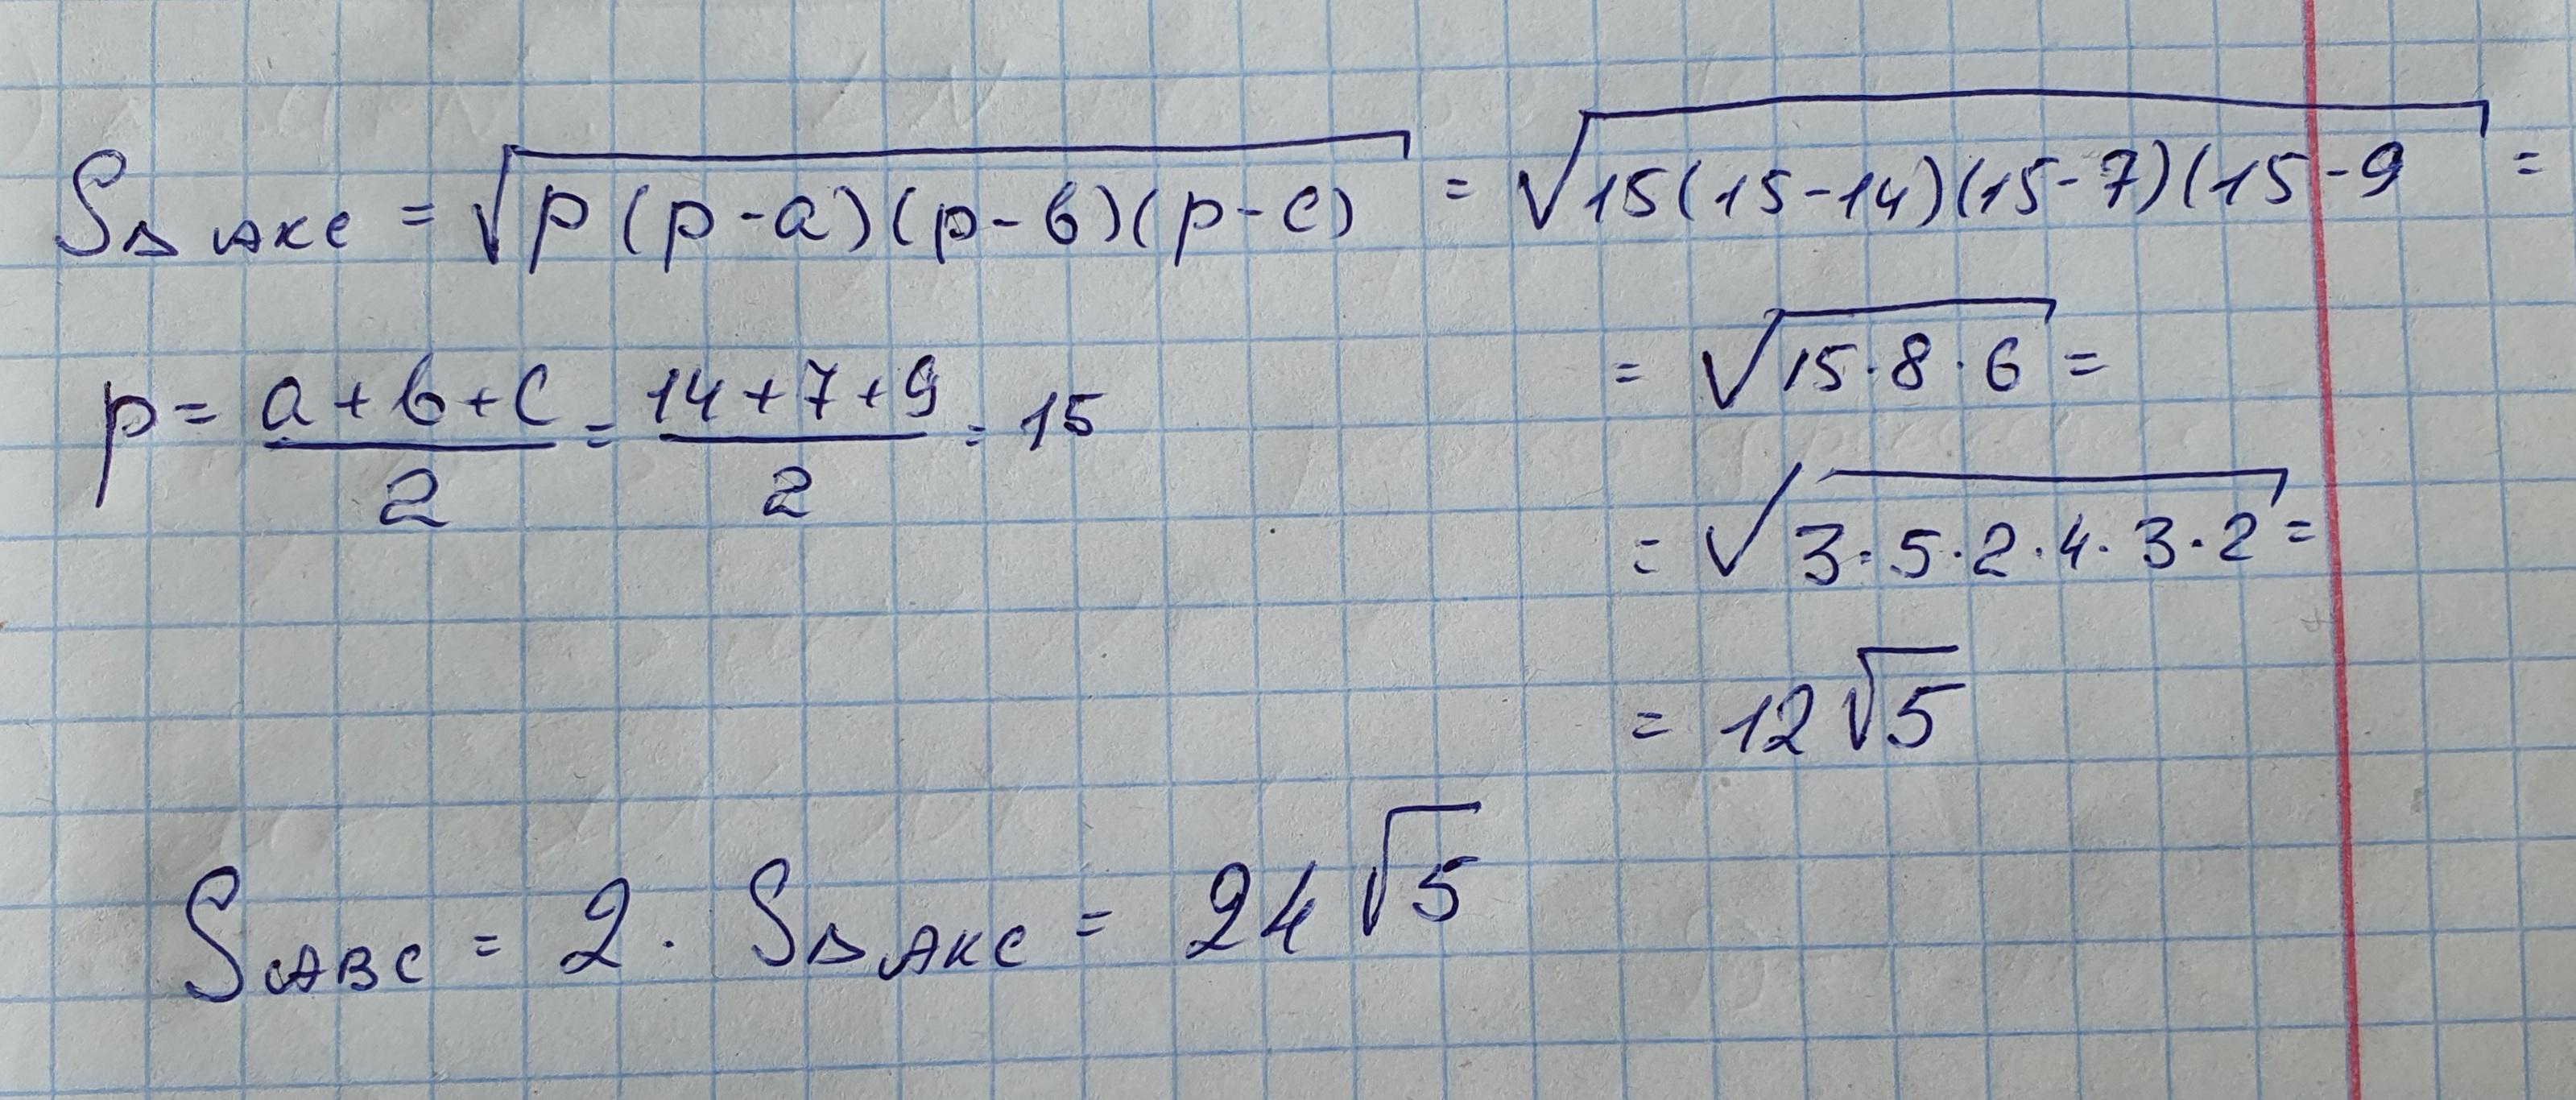 S△AKC = √p(p-a)(p-b)(p-c) = √15(15-14)(15-7)(15-9 =
p = (a+b+c)/2 = (14+7+9)/2 = 15
= √15·8·6 =
= √3·5·2·4·3·2 =
= 12√5
SABC = 2 · S△AKC = 24√5